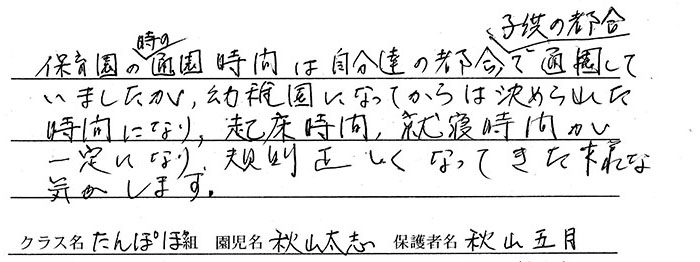 時の
子供の都合
保育園の通園時間は自分達の都合で通園して
いましたが、幼稚園になってからは決められた
時間になり、起床時間、就寝時間が
一定になり、規則正しくなってきた様な
気がします。
クラス名 たんぽぽ組 園児名 秋山太志 保護者名 秋山五月